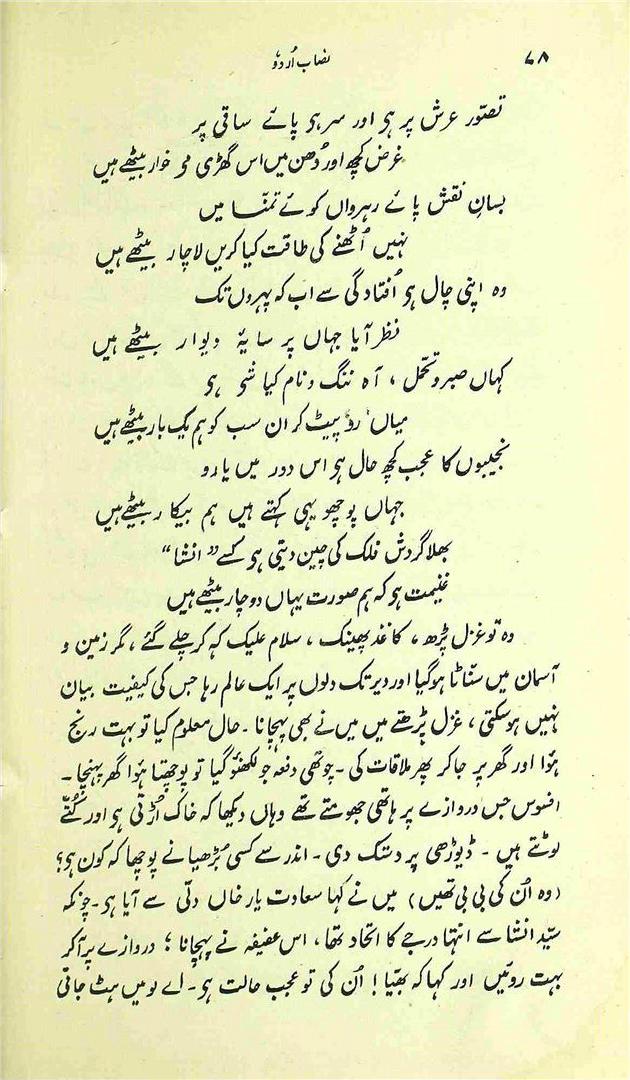 ۷۸
نصاب اُردو
تصوّر عرش پر ہی اور سر ہی پائے ساقی پر
غرض کچھ اور دُھن میں اس گھڑی می خوار بیٹھے ہیں
بسانِ نقش پائے رہرواں کوئے تمنّا میں
نہیں اُٹھنے کی طاقت کیا کریں لاچار بیٹھے ہیں
وہ اپنی چال ہی اُفتادگی سے اب کہ پہروں تک
نظر آیا جہاں پر سایۂ دیوار بیٹھے ہیں
کہاں صبر و تحمّل ، آہ ننگ و نام کیا شی ہی
میاں رو پیٹ کر ان سب کو ہم یکبار بیٹھے ہیں
نجیبوں کا عجب کچھ حال ہی اس دور میں یارو
جہاں پوچھو یہی کہتے ہیں ہم بیکار بیٹھے ہیں
بھلا گردش فلک کی چین دیتی ہی کسے ”انشا“
غنیمت ہی کہ ہم صورت یہاں دو چار بیٹھے ہیں
وہ تو غزل پڑھ ، کاغذ پھینک ، سلام علیک کہہ کر چلے گئے ، مگر زمین و
آسمان میں سنّاٹا ہو گیا اور دیر تک دلوں پر ایک عالم رہا جس کی کیفیت بیان
نہیں ہو سکتی ، غزل پڑھتے میں میں نے بھی پہچانا ۔ حال معلوم کیا تو بہت رنج
ہؤا اور گھر پر جا کر پھر ملاقات کی ۔ چوتھی دفعہ جو لکھنؤ گیا تو پوچھتا ہؤا گھر پہنچا ۔
افسوس جس دروازے پر ہاتھی جھومتے تھے وہاں دیکھا کہ خاک اُڑتی ہی اور کُتّے
لوٹتے ہیں ۔ ڈیوڑھی پر دستک دی ۔ اندر سے کسی بڑھیا نے پوچھا کہ کون ہی؟
(وہ اُن کی بی بی تھیں) میں نے کہا سعادت یار خاں دلّی سے آیا ہی ۔ چونکہ
سیّد انشا سے انتہا درجے کا اتحاد تھا ، اس عفیفہ نے پہچانا ؛ دروازے پر آ کر
بہت روئیں اور کہا کہ بھیّا ! اُن کی تو عجب حالت ہی ۔ اے لو میں ہٹ جاتی